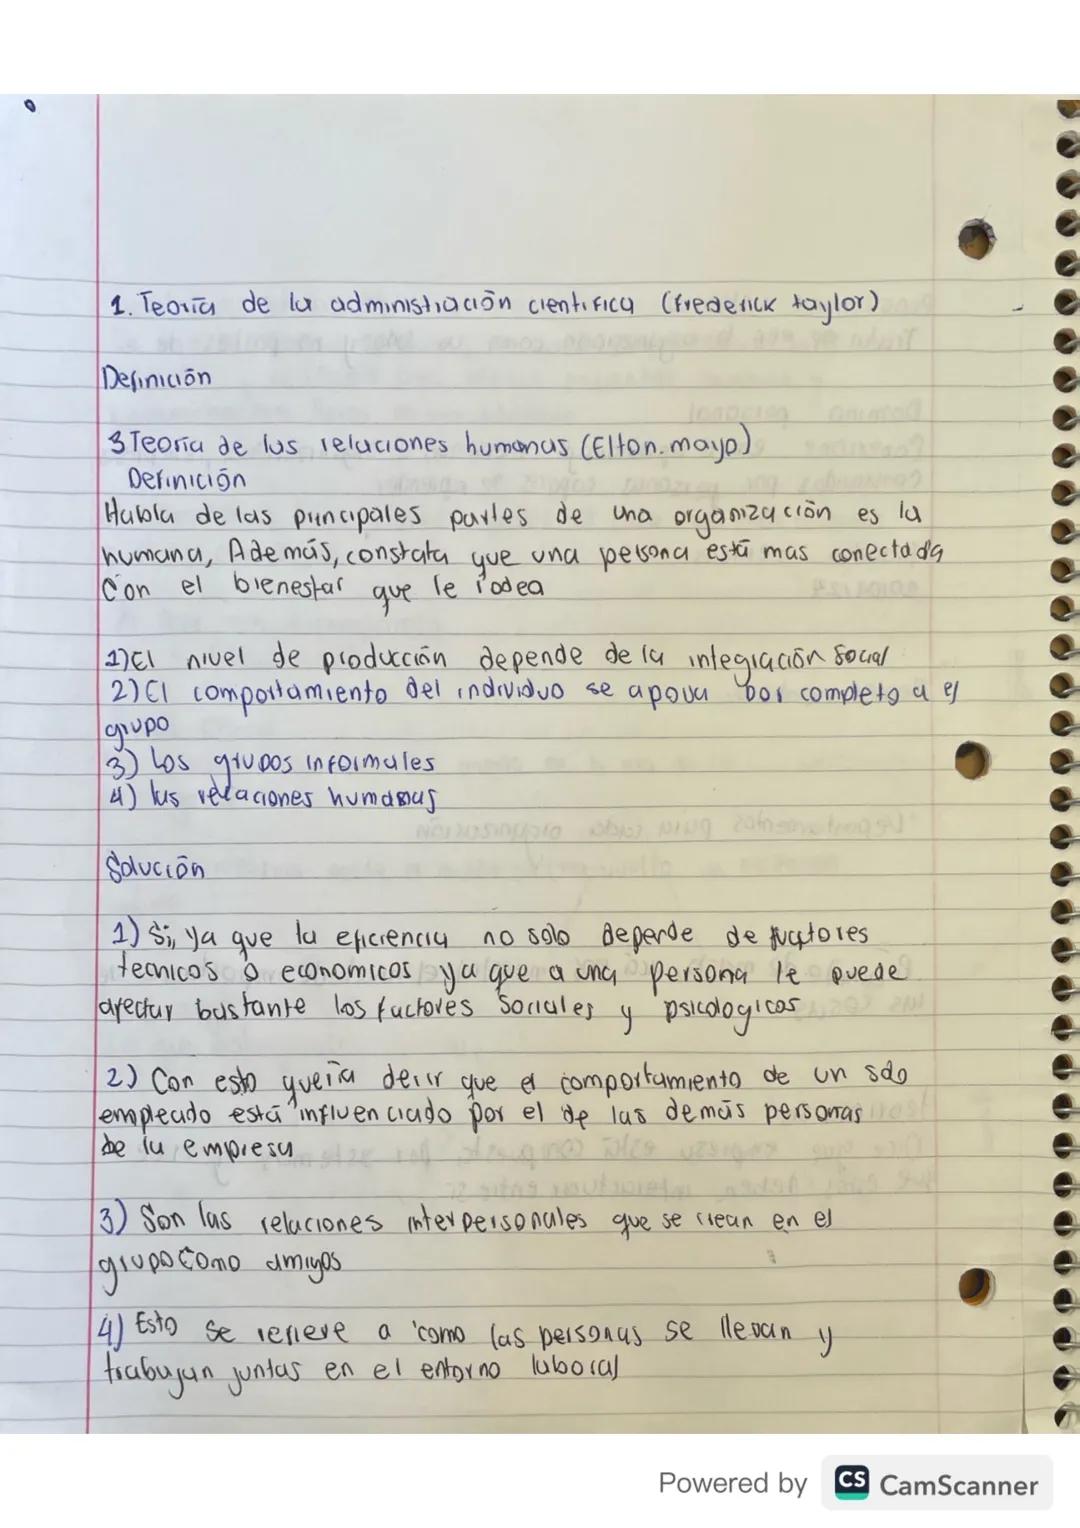 1. Teoría de la administración cientifica (frederick taylor)
Definición
3 Teoría de las relaciones humanas (Elton. mayo)
Definición
Habla de las principales partes de una organización es la
humana, Además, constata que una persona está mas conectada
Con el bienestar que le rodea
1) El nivel de producción depende de la integración Social
2) El comportamiento del individuo se apoya por completo a el
grupo
3) Los grupos informales
4) las relaciones humanas
Solución
1) Si, ya que la eficiencia no solo depende de factores
tecnicos o economicos ya que a una persona le puede
afectar bastante los factores Sociales y psicologicos
2) Con esto quería decir que el comportamiento de un solo
empleado está influenciado por el de las demás personas
de la empresa
3) Son las relaciones interpersonales que se crean en el
grupo Como amigos
4) Esto se refiere a como las personas se llevan y
trabajan juntas en el entorno laboral
Powered by CS CamScanner